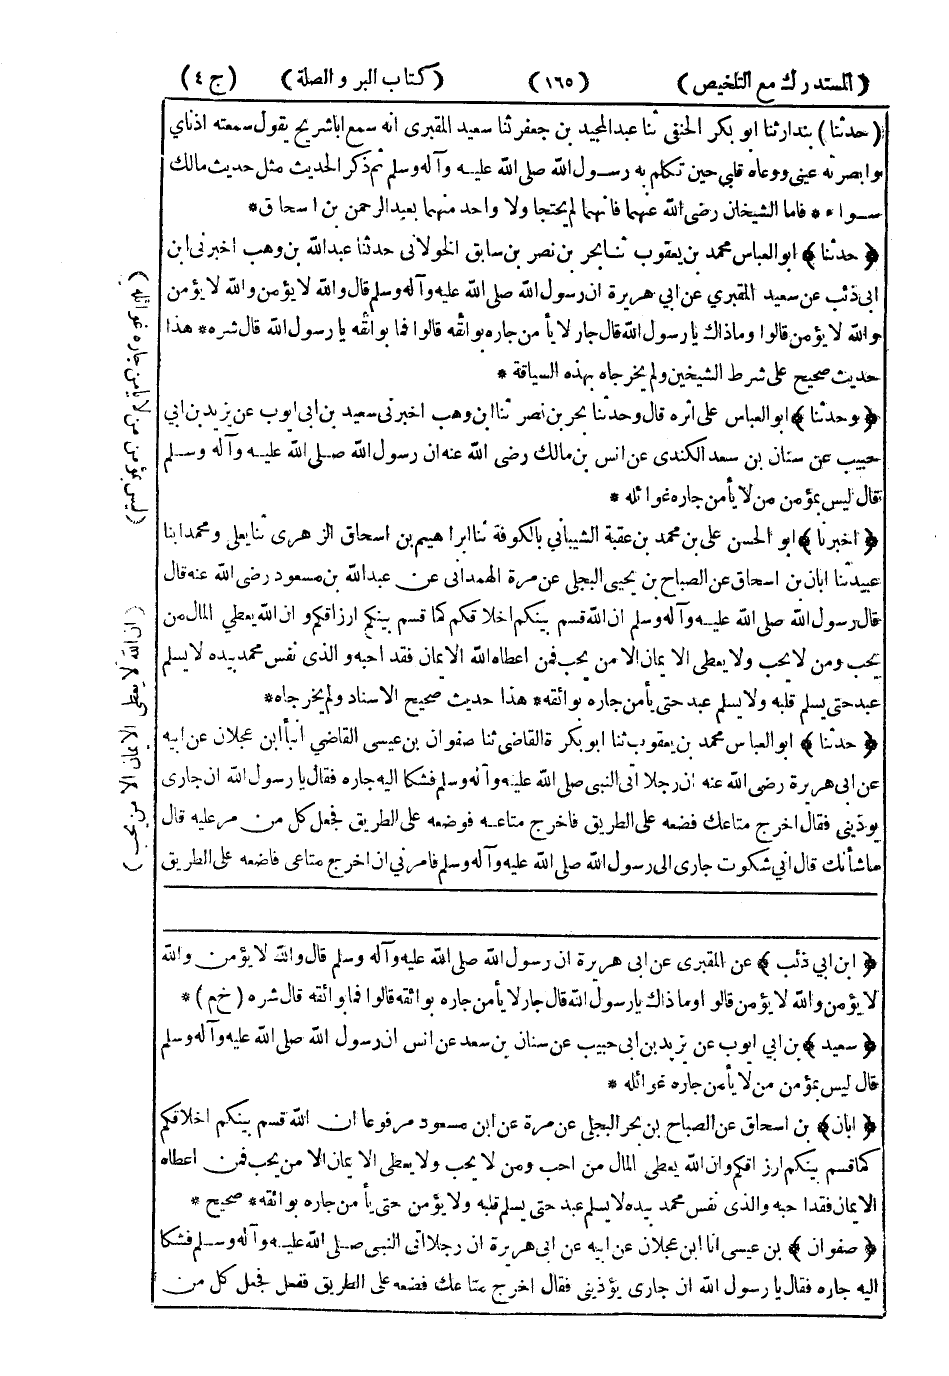 (المستدرك مع التلخيص) (١٦٥) (كتاب البر والصلة) (ج ٤)
(حدثنا) بندار ثنا ابو بكر الحنفى ثنا عبد الحميد بن جعفر ثنا سعيد المقبرى انه سمع ابا شريح يقول سمعته اذناي
وابصرته عينى ووعاه قلبي حين تكلم به رسول الله صلى الله عليه وآله وسلم ثم ذكر الحديث مثل حديث مالك
سواء * فاما الشيخان رضى الله عنهما فانهما لم يحتجا ولا واحد منهما بعبد الرحمن بن اسحاق *
﴿ حدثنا ﴾ ابو العباس محمد بن يعقوب ثنا بحر بن نصر بن سابق الخولانى حدثنا عبد الله بن وهب اخبرنى ابن
ابى ذئب عن سعيد المقبري عن ابي هريرة ان رسول الله صلى الله عليه وآله وسلم قال والله لا يؤمن والله لا يؤمن
والله لا يؤمن قالوا وماذاك يا رسول الله قال جار لا يأمن جاره بوائقه قالوا فما بوائقه يا رسول الله قال شره * هذا
حديث صحيح على شرط الشيخين ولم يخرجاه بهذه السياقة *
﴿ وحدثنا ﴾ ابو العباس على اثره قال وحدثنا بحر بن نصر ثنا ابن وهب اخبرنى سعيد بن ابى ايوب عن يزيد بن ابي
حبيب عن سنان بن سعد الكندى عن انس بن مالك رضى الله عنه ان رسول الله صلى الله عليه وآله وسلم
قال ليس بمؤمن من لا يأمن جاره غوائله *
﴿ اخبرنا ﴾ ابو الحسن على بن محمد بن عقبة الشيباني بالكوفة ثنا ابراهيم بن اسحاق الزهرى ثنا يعلى ومحمد ابنا
عبيد ثنا ابان بن اسحاق عن الصباح بن يحيى البجلى عن مرة الهمدانى عن عبد الله بن مسعود رضى الله عنه قال
قال رسول الله صلى الله عليه وآله وسلم ان الله قسم بينكم اخلاقكم كما قسم بينكم ارزاقكم وان الله يعطي المال من
يحب ومن لا يحب ولا يعطى الايمان الا من يحب فمن اعطاه الله الايمان فقد احبه والذى نفس محمد بيده لا يسلم
عبد حتى يسلم قلبه ولا يسلم عبد حتى يأمن جاره بوائقه * هذا حديث صحيح الاسناد ولم يخرجاه *
﴿ حدثنا ﴾ ابو العباس محمد بن يعقوب ثنا ابو بكرة القاضى ثنا صفوان بن عيسى القاضي انبأ ابن عجلان عن ابيه
عن ابى هريرة رضى الله عنه ان رجلا اتى النبي صلى الله عليه وآله وسلم فشكا اليه جاره فقال يا رسول الله ان جارى
يوذينى فقال اخرج متاعك فضعه على الطريق فاخرج متاعه فوضعه على الطريق فجعل كل من مر عليه قال
ماشأنك قال اني شكوت جارى الى رسول الله صلى الله عليه وآله وسلم فامرني ان اخرج متاعى فاضعه على الطريق
(ليس بمؤمن من لا يأمن جاره غوائله)
(ان الله لا يعطى الايمان الا من يحب)
﴿ ابن ابي ذئب ﴾ عن المقبرى عن ابى هريرة ان رسول الله صلى الله عليه وآله وسلم قال والله لا يؤمن والله
لا يؤمن والله لا يؤمن قالوا وماذاك يا رسول الله قال جار لا يأمن جاره بوائقه قالوا فما بوائقه قال شره (خ م) *
﴿ سعيد ﴾ بن ابي ايوب عن يزيد بن ابى حبيب عن سنان بن سعد عن انس ان رسول الله صلى الله عليه وآله وسلم
قال ليس بمؤمن من لا يأمن جاره غوائله *
﴿ ابان ﴾ بن اسحاق عن الصباح بن بحر البجلى عن مرة عن ابن مسعود مرفوعا ان الله قسم بينكم اخلاقكم
كما قسم بينكم ارزاقكم وان الله يعطى المال من احب ومن لا يحب ولا يعطى الايمان الا من يحب فمن اعطاه
الايمان فقد احبه والذى نفس محمد بيده لا يسلم عبد حتى يسلم قلبه ولا يؤمن حتى يأمن جاره بوائقه * صحيح *
﴿ صفوان ﴾ بن عيسى انا ابن عجلان عن ابيه عن ابى هريرة ان رجلا اتى النبي صلى الله عليه وآله وسلم فشكا
اليه جاره فقال يا رسول الله ان جارى يؤذينى فقال اخرج متاعك فضعه على الطريق ففعل فجعل كل من